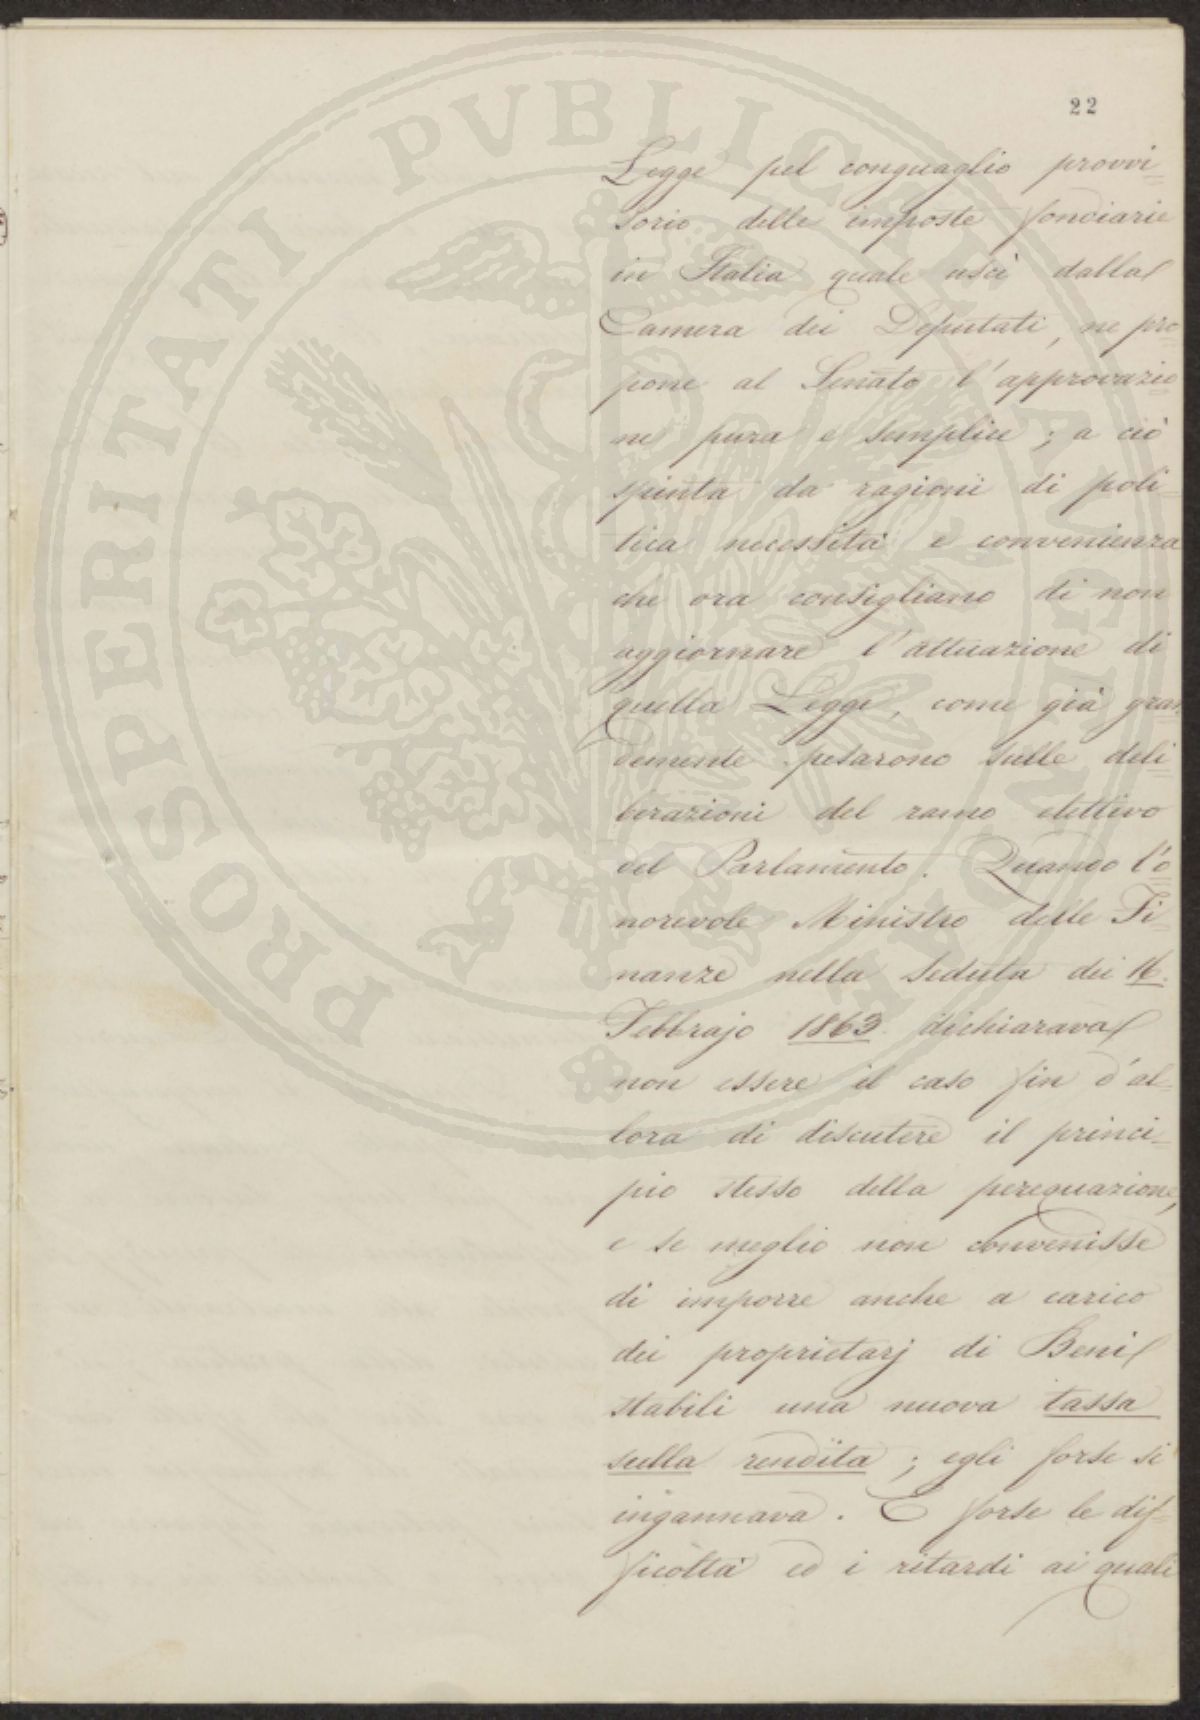 22
Legge pel conguaglio provvi=
sorio delle imposte fondiarie
in Italia quale uscì dalla
Camera dei Deputati, ne pro=
pone al Senato l'approvazio=
ne pura e semplice; a ciò
spinta da ragioni di poli=
tica necessità e convenienza
che ora consigliano di non
aggiornare l'attuazione di
quella Legge, come già gran
demente pesarono sulle deli=
berazioni del ramo elettivo
del Parlamento. Quando l'o=
norevole Ministro delle Fi=
nanze nella seduta dei 16.
Febbrajo 1863. dichiarava
non essere il caso fin d'al=
lora di discutere il princi=
pio stesso della perequazione,
e se meglio non convenisse
di imporre anche a carico
dei proprietarj di Beni
stabili una nuova tassa
sulla rendita; egli forse si
ingannava. E forse le dif=
ficoltà ed i ritardi ai quali
PROSPERITATI PVBLICAE AVGENDAE